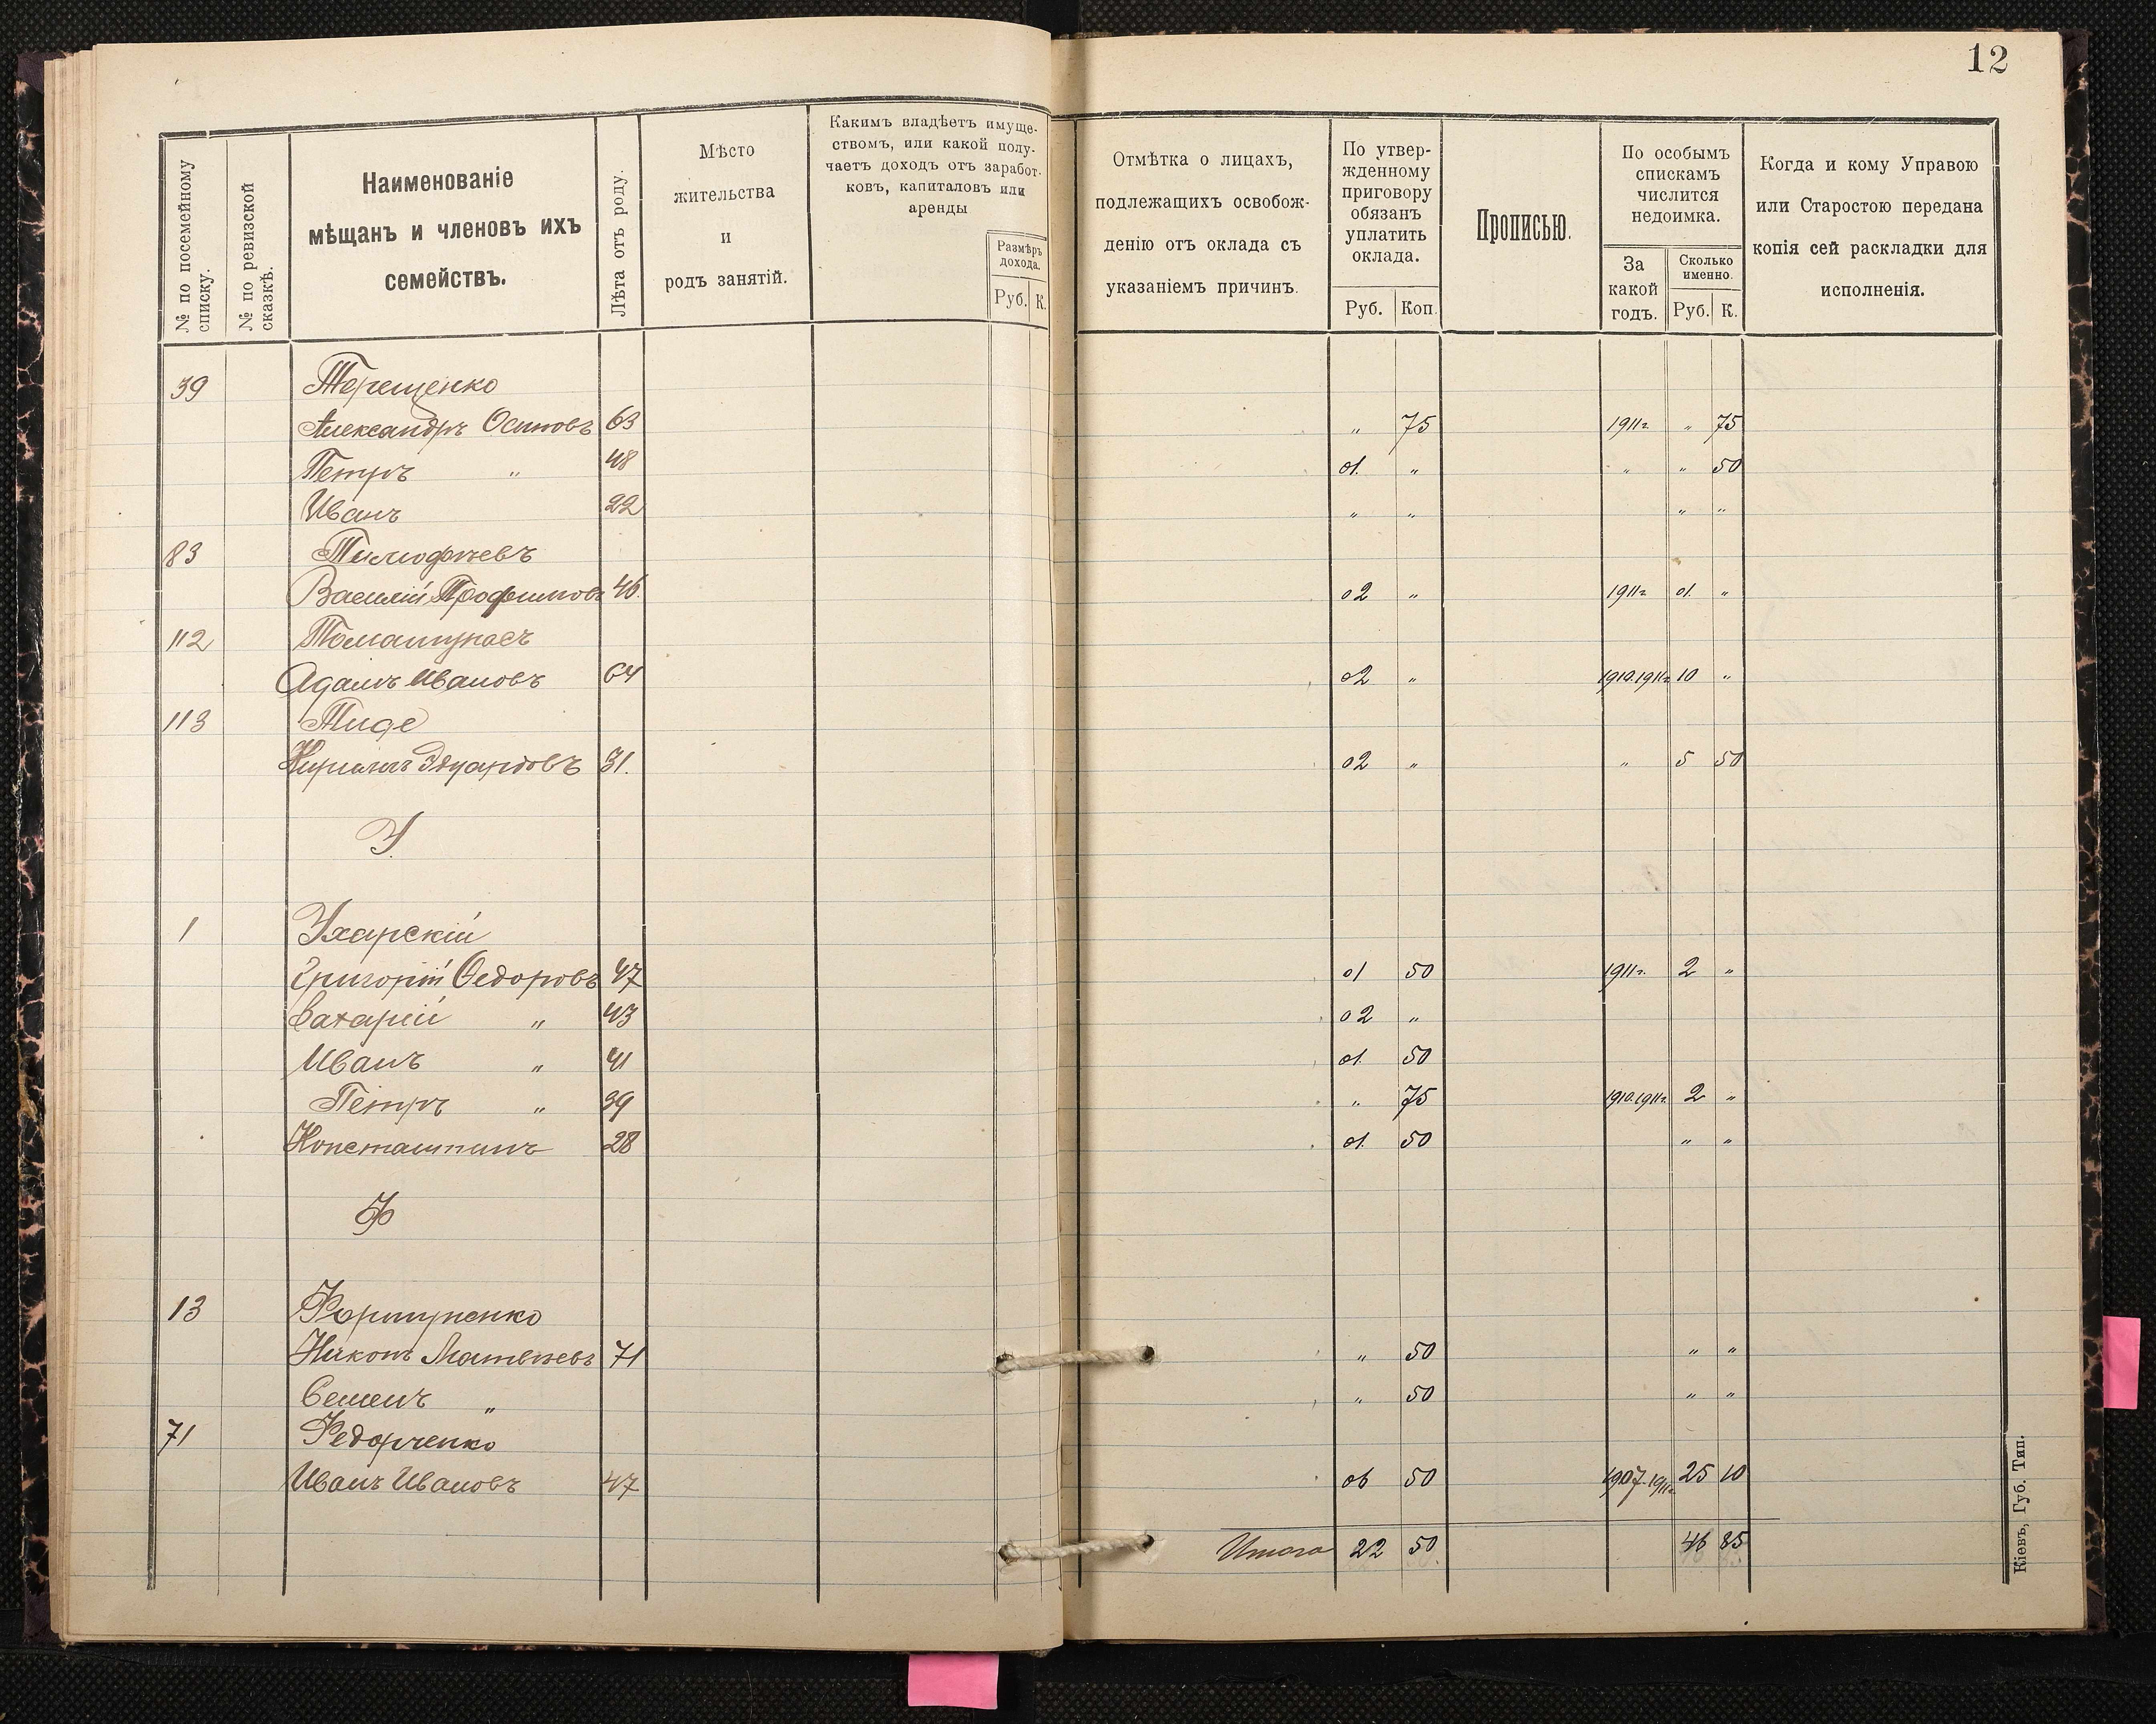 12
№ по посемейному списку.
№ по ревизской сказкѣ.
Наименованіе
мѣщанъ и членовъ ихъ
семействъ.
Лѣта отъ роду.
Мѣсто
жительства
и
родъ занятій.
Какимъ владѣетъ имуще-
ствомъ, или какой полу-
чаетъ доходъ отъ заработ-
ковъ, капиталовъ или
аренды
Размѣръ
дохода.
Руб. К.
Отмѣтка о лицахъ,
подлежащихъ освобож-
денію отъ оклада съ
указаніемъ причинъ.
По утвер-
жденному
приговору
обязанъ
уплатить
оклада.
Руб. Коп.
Прописью.
По особымъ
спискамъ
числится
недоимка.
За
какой
годъ.
Сколько
именно.
Руб. К.
Когда и кому Управою
или Старостою передана
копія сей раскладки для
исполненія.
39 Терещенко
Александръ Осиповъ 63 " 75 1911г. " 75
Петръ " 48 01. " " " 50
Иванъ 22 " " " "
83 Тимофѣевъ
Василій Трофимовъ 46. 02 " 1911г 01. "
112
Адамъ Ивановъ 64 02 " 1910.1911г 10 "
113 Тиде
Эдуардовъ 31. 02 " " 5 50
У.
1 Ухарскій
Григорій Ѳедоровъ 47 01 50 1911г. 2 "
Захарій " 43 02 "
Иванъ " 41 01. 50
Петръ " 39 " 75 1910.1911г. 2 "
Константинъ 28 01. 50 " "
Ф
13 Фортуненко
Никонъ Матвѣевъ 71 " 50 " "
Семенъ " " 50 " "
71 Федорченко
Иванъ Ивановъ 47 06 50 1907-1911г. 25 10
Итого 22 50 46 85
Кіевъ, Губ. Тип.